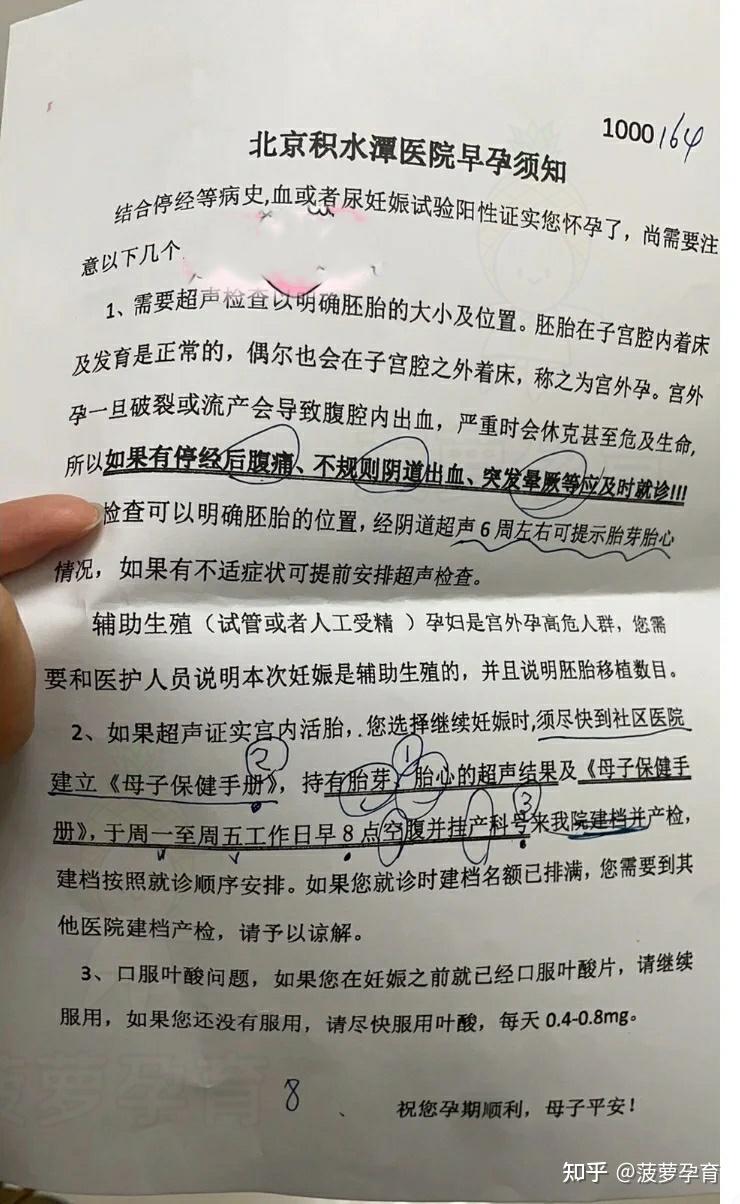 1000164
北京积水潭医院早孕须知
结合停经等病史,血或者尿妊娠试验阳性证实您怀孕了，尚需要注
意以下几个
1、需要超声检查以明确胚胎的大小及位置。胚胎在子宫腔内着床
及发育是正常的，偶尔也会在子宫腔之外着床，称之为宫外孕。宫外
孕一旦破裂或流产会导致腹腔内出血，严重时会休克甚至危及生命,
所以如果有停经后腹痛、不规则阴道出血、突发晕厥等应及时就诊!!!
检查可以明确胚胎的位置，经阴道超声6周左右可提示胎芽胎心
情况，如果有不适症状可提前安排超声检查。
辅助生殖（试管或者人工受精 ）孕妇是宫外孕高危人群，您需
要和医护人员说明本次妊娠是辅助生殖的，并且说明胚胎移植数目。
2、如果超声证实宫内活胎，.您选择继续妊娠时,须尽快到社区医院
② ①
建立《母子保健手册》，持有胎芽、胎心的超声结果及《母子保健手
③
册》，于周一至周五工作日早8点空腹并挂产科号来我院建档并产检，
建档按照就诊顺序安排。如果您就诊时建档名额已排满，您需要到其
他医院建档产检，请予以谅解。
3、口服叶酸问题，如果您在妊娠之前就已经口服叶酸片，请继续
服用，如果您还没有服用，请尽快服用叶酸，每天0.4-0.8mg。
8 、 祝您孕期顺利，母子平安！
菠萝孕育
知乎 @菠萝孕育